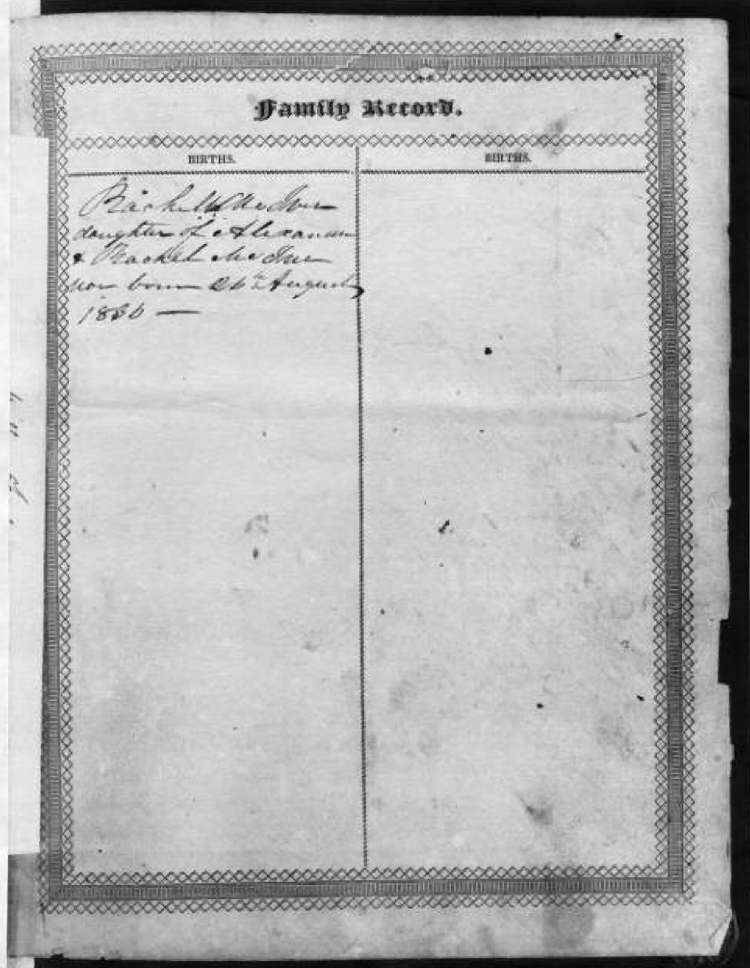 Family Record.
BIRTHS.
BIRTHS.
Rachel McIver
daughter of Alexander
& Rachel McIver
was born 26th August
18 6 —